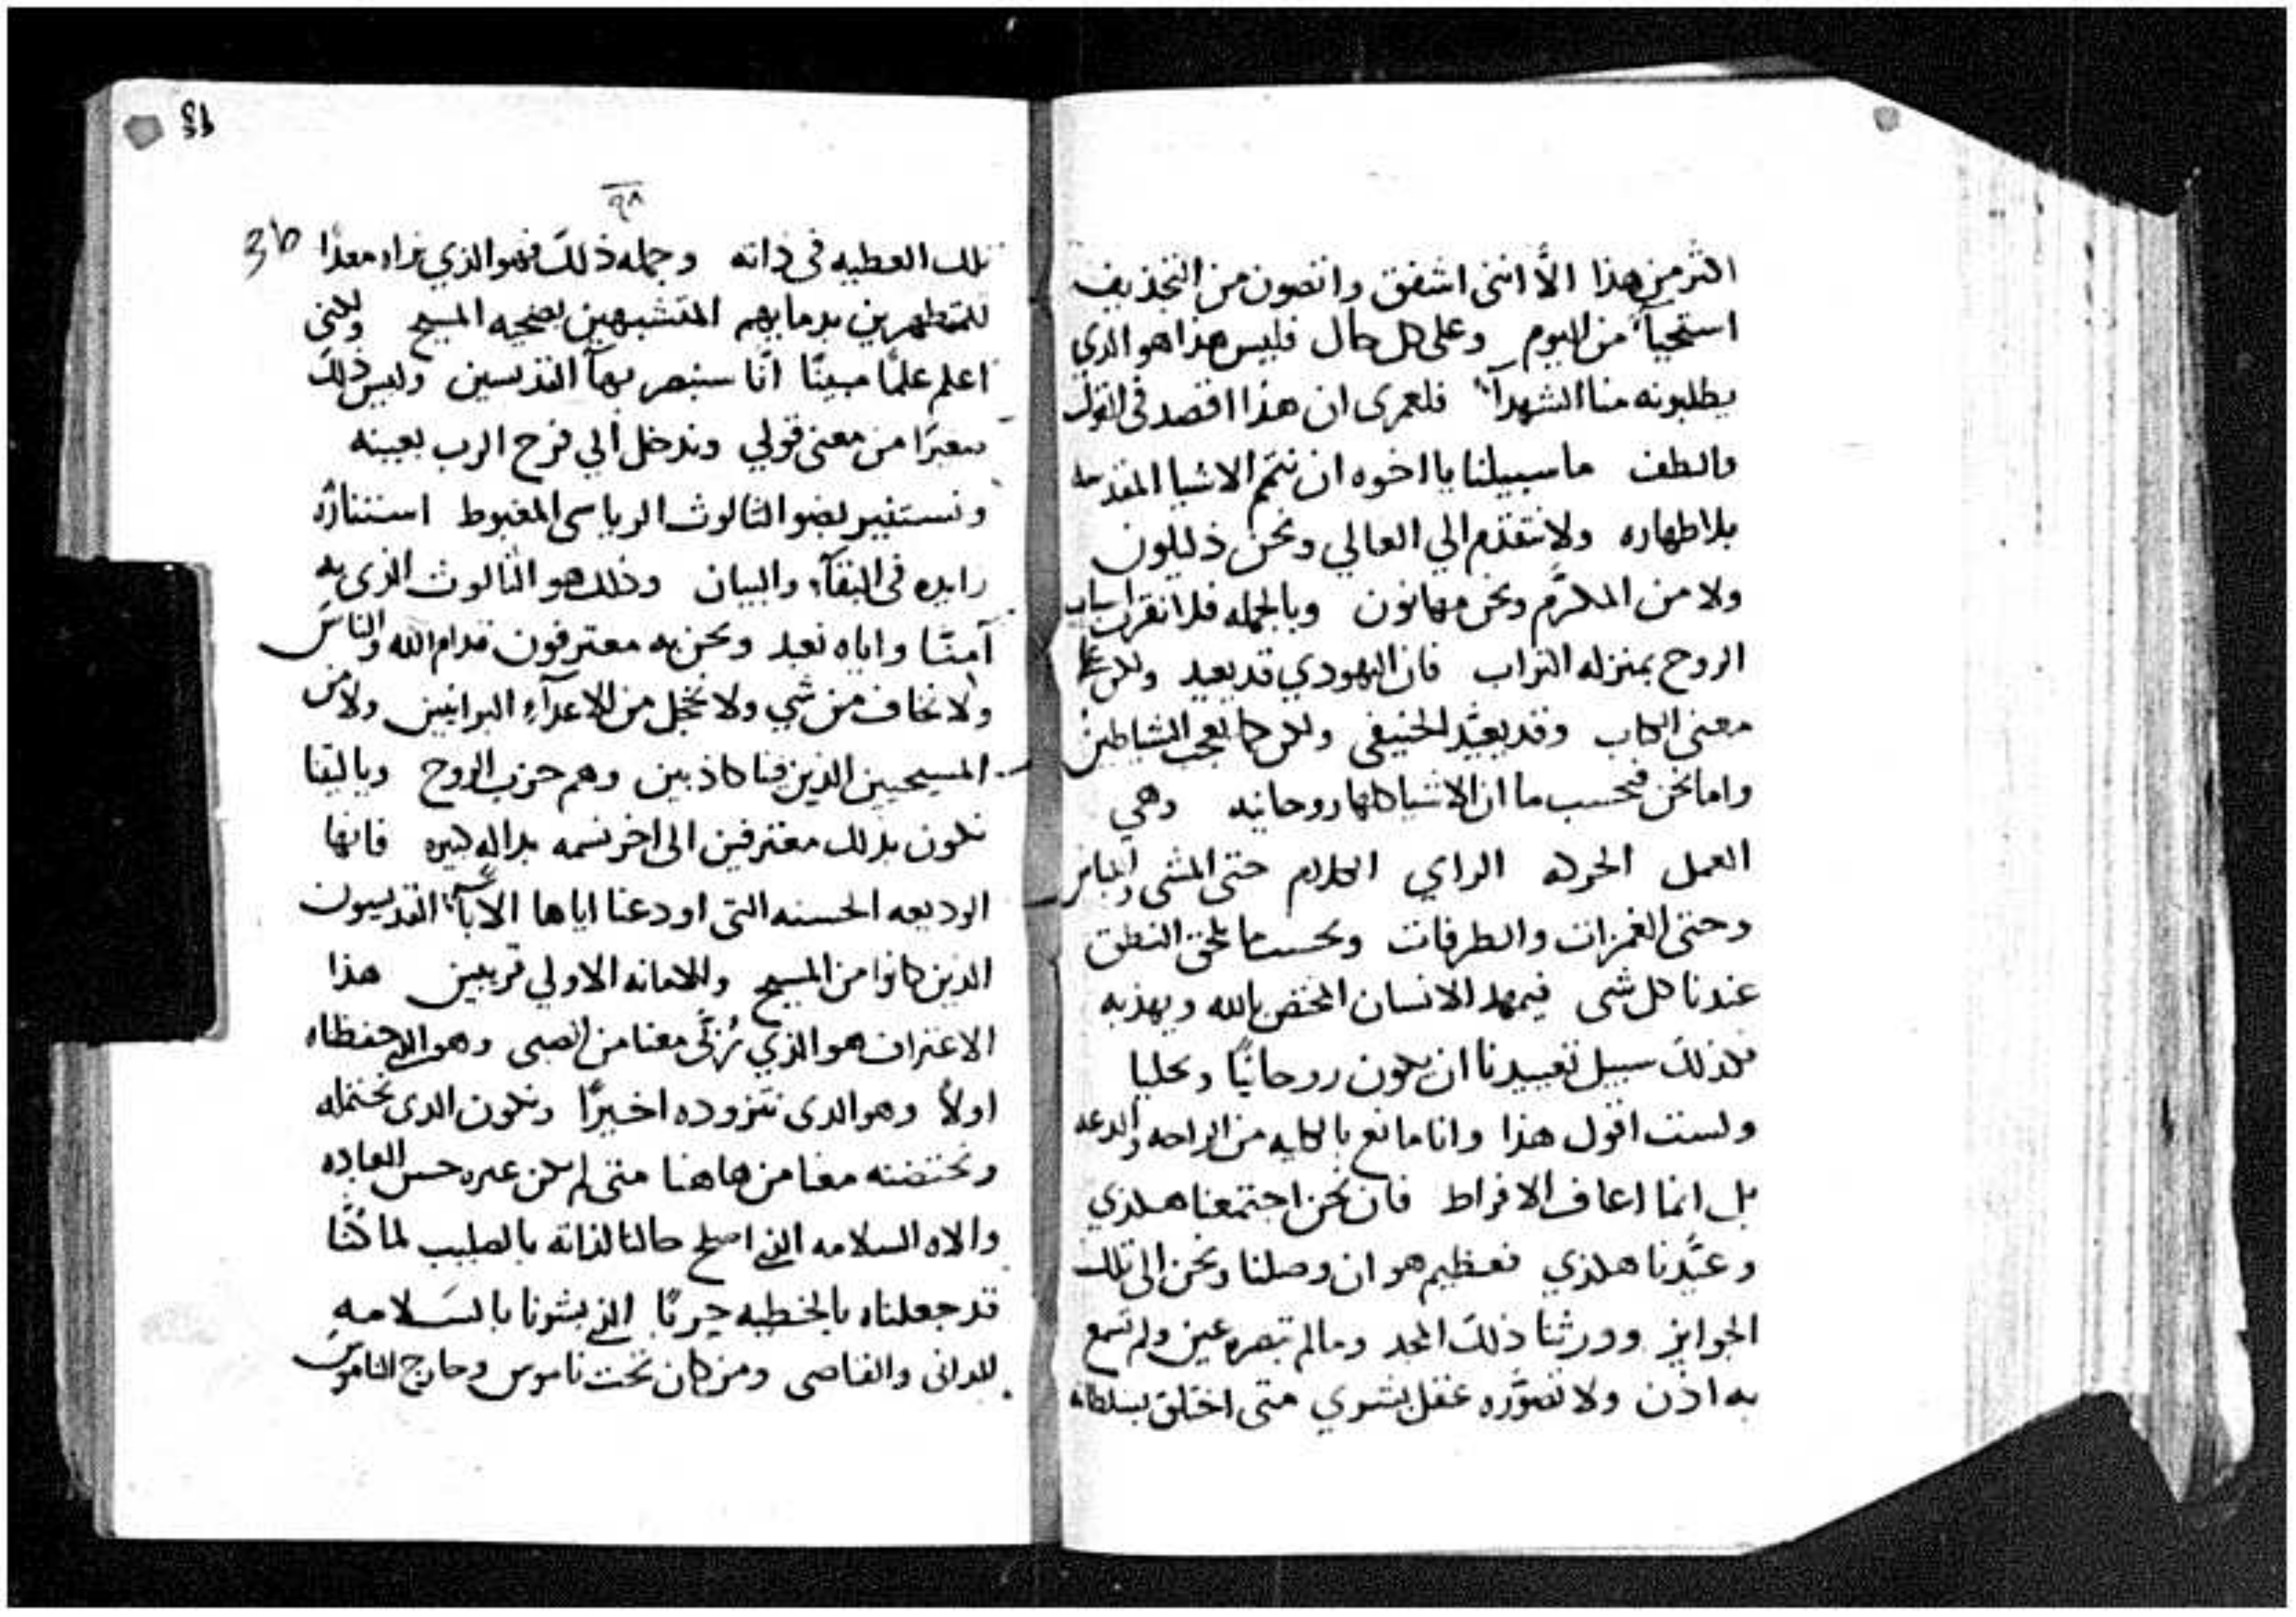 اكثر من هذا الّا انني اشفق واتصون من التجذيف
استحياً من اليوم وعلى كل حال فليس هذا هو الذي
يطلبونه منا الشهدآء فلعمرى ان هذا اقصد في القول
والطف ما سبيلنا يا اخوه ان نتمم الاشيا المقدسه
بلا طهاره ولا نتقدم الي العالي ونحن ذليلون
ولا من المكرَّم ونحن مهانون وبالجمله فلا نقرب اسباب
الروح بمنزله التراب فان اليهودي قد يعيد ولكن على
معنى الكتاب وقد يعيّد الحنيفى ولكن كما يعجب الشياطين
واما نحن فبحسب ما ان الاشيا كلها روحانيه وهي
العمل الحركه الراي الكلام حتى المشى واللباس
وحتى الغمزات والطرفات وبحسب ما يلحق النطق
عندنا كل شى فيمهد الانسان المختص بالله ويهذبه
فكذلك سبيل تعييدنا ان يكون روحانيًا وبحليا
ولست اقول هذا وانا مانع بالكليه من الراحه والدعه
بل انما اعاف الافراط فان نحن اجتمعنا هكذي
وعيَّدنا هكذي فعظيم هو ان وصلنا ونحن الى تلك
الجوايز وورثنا ذلك المجد وما لم تبصره عين ولم تسمع
به اذن ولا تصوَّره عقل بشري متى اختلق بسلطانه
٩٨
36
تلك العطيه فى ذاته وجمله ذلك فهو الذي نراه معدًا
للمتطهرين بدمايهم المتشبهين بضحيه المسيح ولكنى
اعلم علمًا مبينًا انّا سنبصر بهآ القديسين وليس ذلك
معبرًا من معنى قولي وندخل الي فرح الرب بعينه
ونستنير بضو الثالوث الرياسى المغبوط استنارة
زايده فى النقآء والبيان وذلك هو الثالوث الذى به
آمنّا واياه نعبد ونحن به معترفون قدام الله والناس
ولا نخاف من شي ولا نخجل من الاعدآء البرانيين ولا من
المسيحيين الذين فينا كاذبين وهم حزب الروح وياليتنا
نكون بذلك معترفين الى اخر نسمه بداله كبيره فانها
الوديعه الحسنه التى اودعنا اياها الآباء القديسون
الذين كانوا من المسيح والامانه الاولي قريبين هذا
الاعتراف هو الذي تُربّى معنا من الصبى وهو الذي حفظناه
اولاً وهو الذى نتزوده اخيرًا ونكون الذى نحتمله
ونحتضنه معنا من هاهنا متى لم يكن غيره حسن العباده
والاه السلامه الذي اصلح حالنا لذاته بالصليب لما كُنّا
قد جعلناه بالخطيه حربًا الذي بشرنا بالسلامه
للدانى والقاصى ومن كان تحت ناموس وخارج الناموس